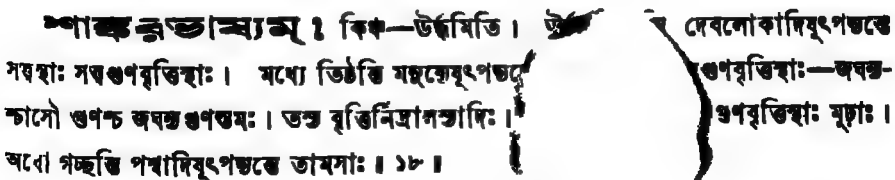 শাঙ্করভাষ্যম্ : কিঞ্চ—ঊর্দ্ধমিতি। দেবলোকাদিষূৎপদ্যন্তে
সত্ত্বস্থাঃ সত্ত্বগুণবৃত্তিস্থাঃ। মধ্যে তিষ্ঠন্তি মনুষ্যেষূৎপদ্যন্তে গুণবৃত্তিস্থাঃ—জঘন্য-
শ্চাসৌ গুণশ্চ জঘন্যগুণস্তমঃ। তস্য বৃত্তির্নিদ্রালস্যাদিঃ। গুণবৃত্তিস্থাঃ মূঢ়াঃ।
অধো গচ্ছন্তি পশ্বাদিষূৎপদ্যন্তে তামসাঃ॥ ১৮॥